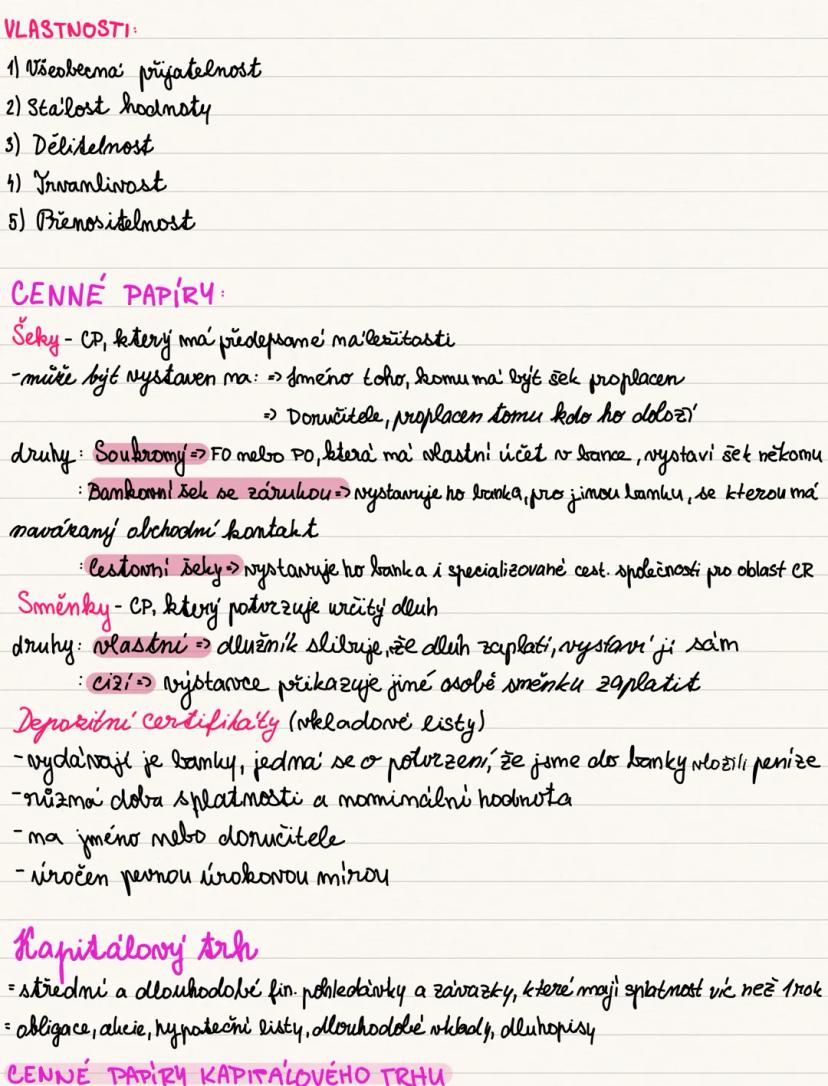 VLASTNOSTI:
1) Všeobecná přijatelnost
2) Stálost hodnoty
3) Dělitelnost
4) Trvanlivost
5) Přenositelnost
CENNÉ PAPÍRY:
Šeky - CP, který má předepsané náležitosti
- může být vystaven na: => Jméno toho, komu má být šek proplacen
=> Doručitele, proplacen tomu kdo ho doloží
druhy: Soukromý => FO nebo PO, která má vlastní účet v bance, vystaví šek někomu
: Bankovní šek se zárukou => vystavuje ho banka, pro jinou banku, se kterou má
navázaný obchodní kontakt
: Cestovní šeky => vystavuje ho banka i specializované cest. společnosti pro oblast CR
Směnky - CP, který potvrzuje určitý dluh
druhy: vlastní => dlužník slibuje, že dluh zaplatí, vystaví ji sám
: cizí => výstavce přikazuje jiné osobě směnku zaplatit
Depozitní certifikáty (vkladové listy)
- vydávají je banky, jedná se o potvrzení, že jsme do banky vložili peníze
- různá doba splatnosti a nominální hodnota
- na jméno nebo doručitele
- úročen pevnou úrokovou mírou
Kapitálový trh
= střední a dlouhodobé fin. pohledávky a závazky, které mají splatnost víc než 1 rok
= obligace, akcie, hypoteční listy, dlouhodobé vklady, dluhopisy
CENNÉ PAPÍRY KAPITÁLOVÉHO TRHU